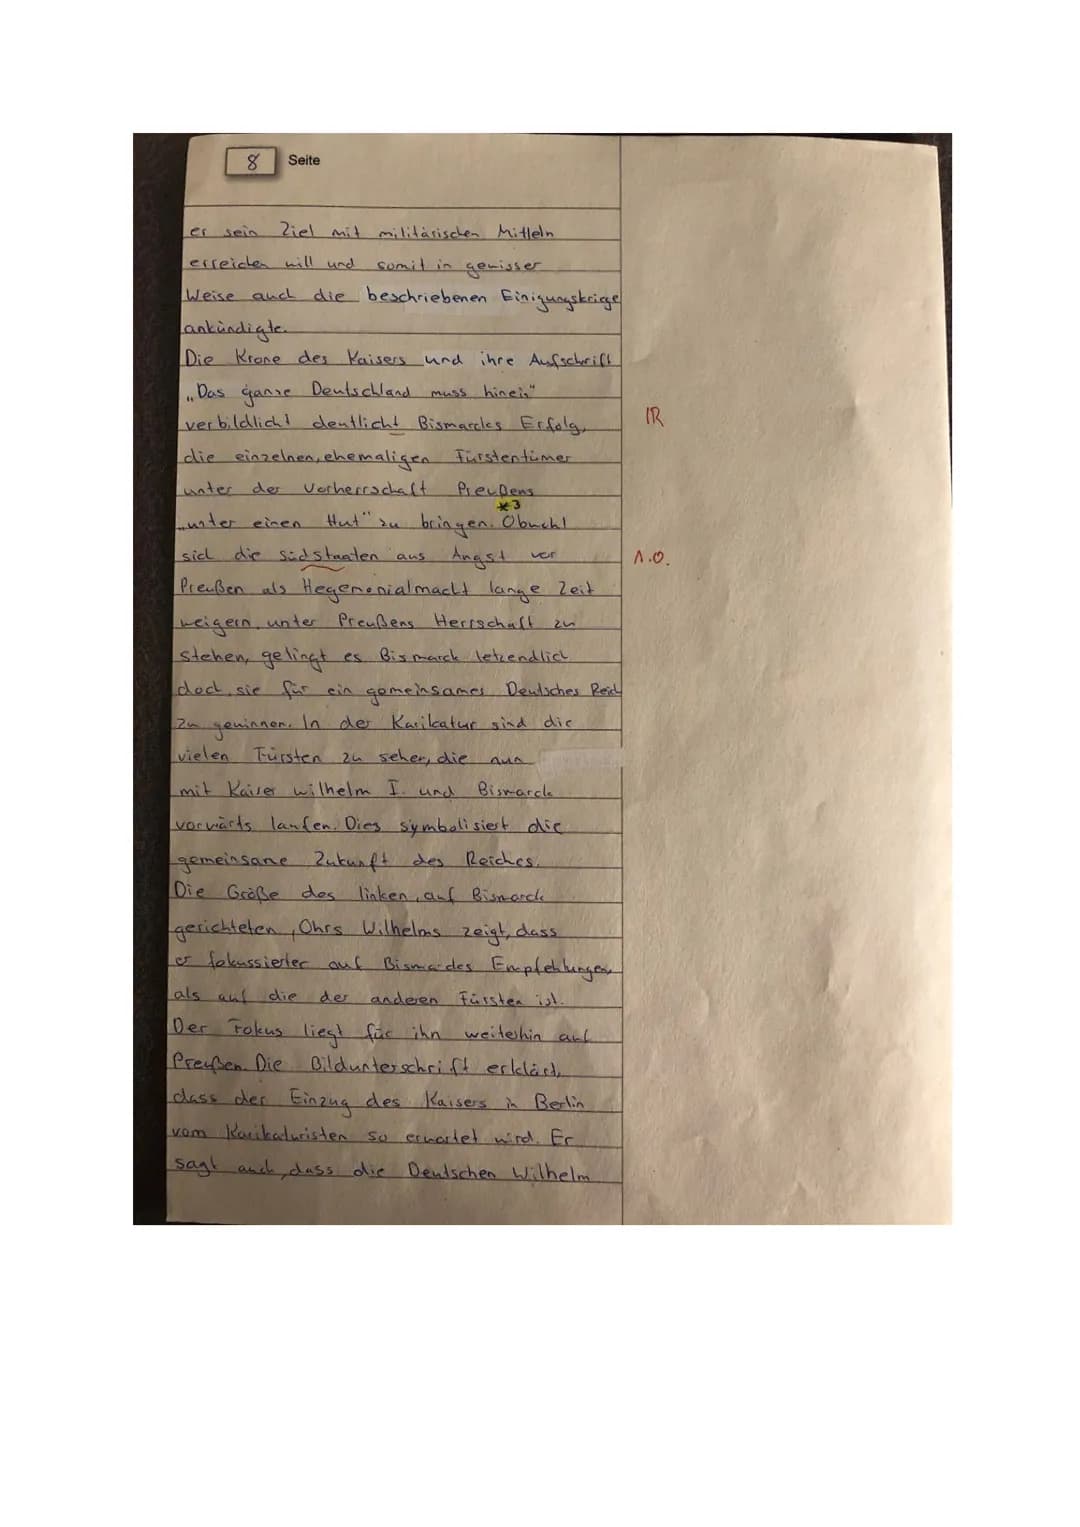 8 Seite
er sein Ziel mit militärischen Mitteln
erreichen will und somit in gewisser
Weise auch die beschriebenen Einigungskriege
ankündigte.
Die Krone des Kaisers und ihre Aufschrift
„Das ganze Deutschland muss hinein"
verbildlicht deutlicht Bismarcks Erfolg, IR
die einzelnen, ehemaligen Fürstentümer
unter der Vorherrschaft Preußens
*3
„unter einen Hut" zu bringen. Obwohl
sich die Südstaaten aus Angst vor A.O.
Preußen als Hegemonialmacht lange Zeit
weigern, unter Preußens Herrschaft zu
stehen, gelingt es Bismarck letzendlich
doch, sie für ein gemeinsames Deutsches Reich
zu gewinnen. In der Karikatur sind die
vielen Fürsten zu sehen, die nun
mit Kaiser Wilhelm I. und Bismarck
vorwärts laufen. Dies symbolisiert die
gemeinsame Zukunft des Reiches.
Die Größe des linken, auf Bismarck
gerichteten, Ohrs Wilhelms zeigt, dass
er fokussierter auf Bismarckes Empfehlungen
als auf die der anderen Fürsten ist.
Der Fokus liegt für ihn weiterhin auf
Preußen. Die Bildunterschrift erklärt,
dass der Einzug des Kaisers in Berlin
vom Karikaturisten so erwartet wird. Er
sagt auch, dass die Deutschen Wilhelm